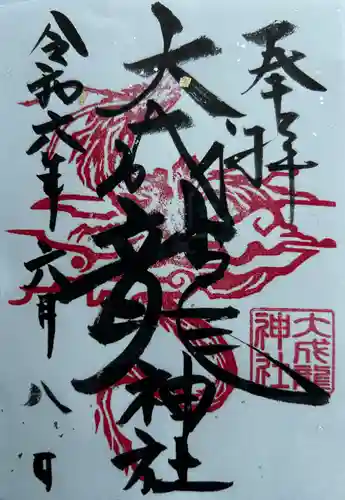 奉拝
大成龍神社
令和六年六月八日
大成龍
神社